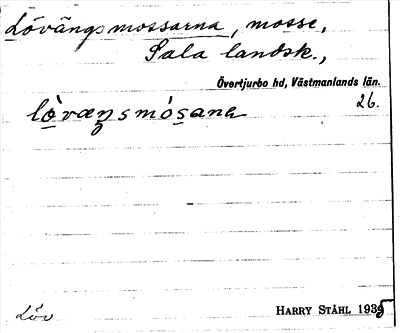 Lövängsmossarna, mosse,
Sala landsk.,
Övertjurbo hd, Västmanlands län.
26.
lò̱væŋsmós̱ana
Löv
HARRY STÅHL 1935